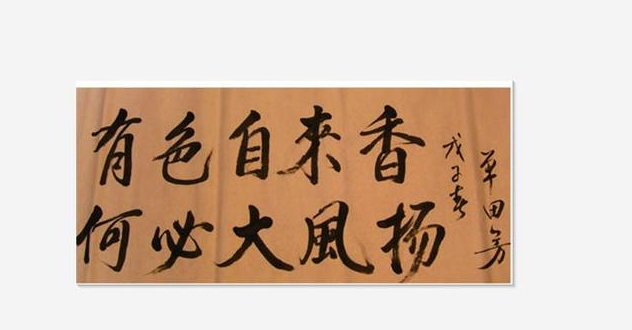 有色自來香
何必大風扬
戊子春
单田芳